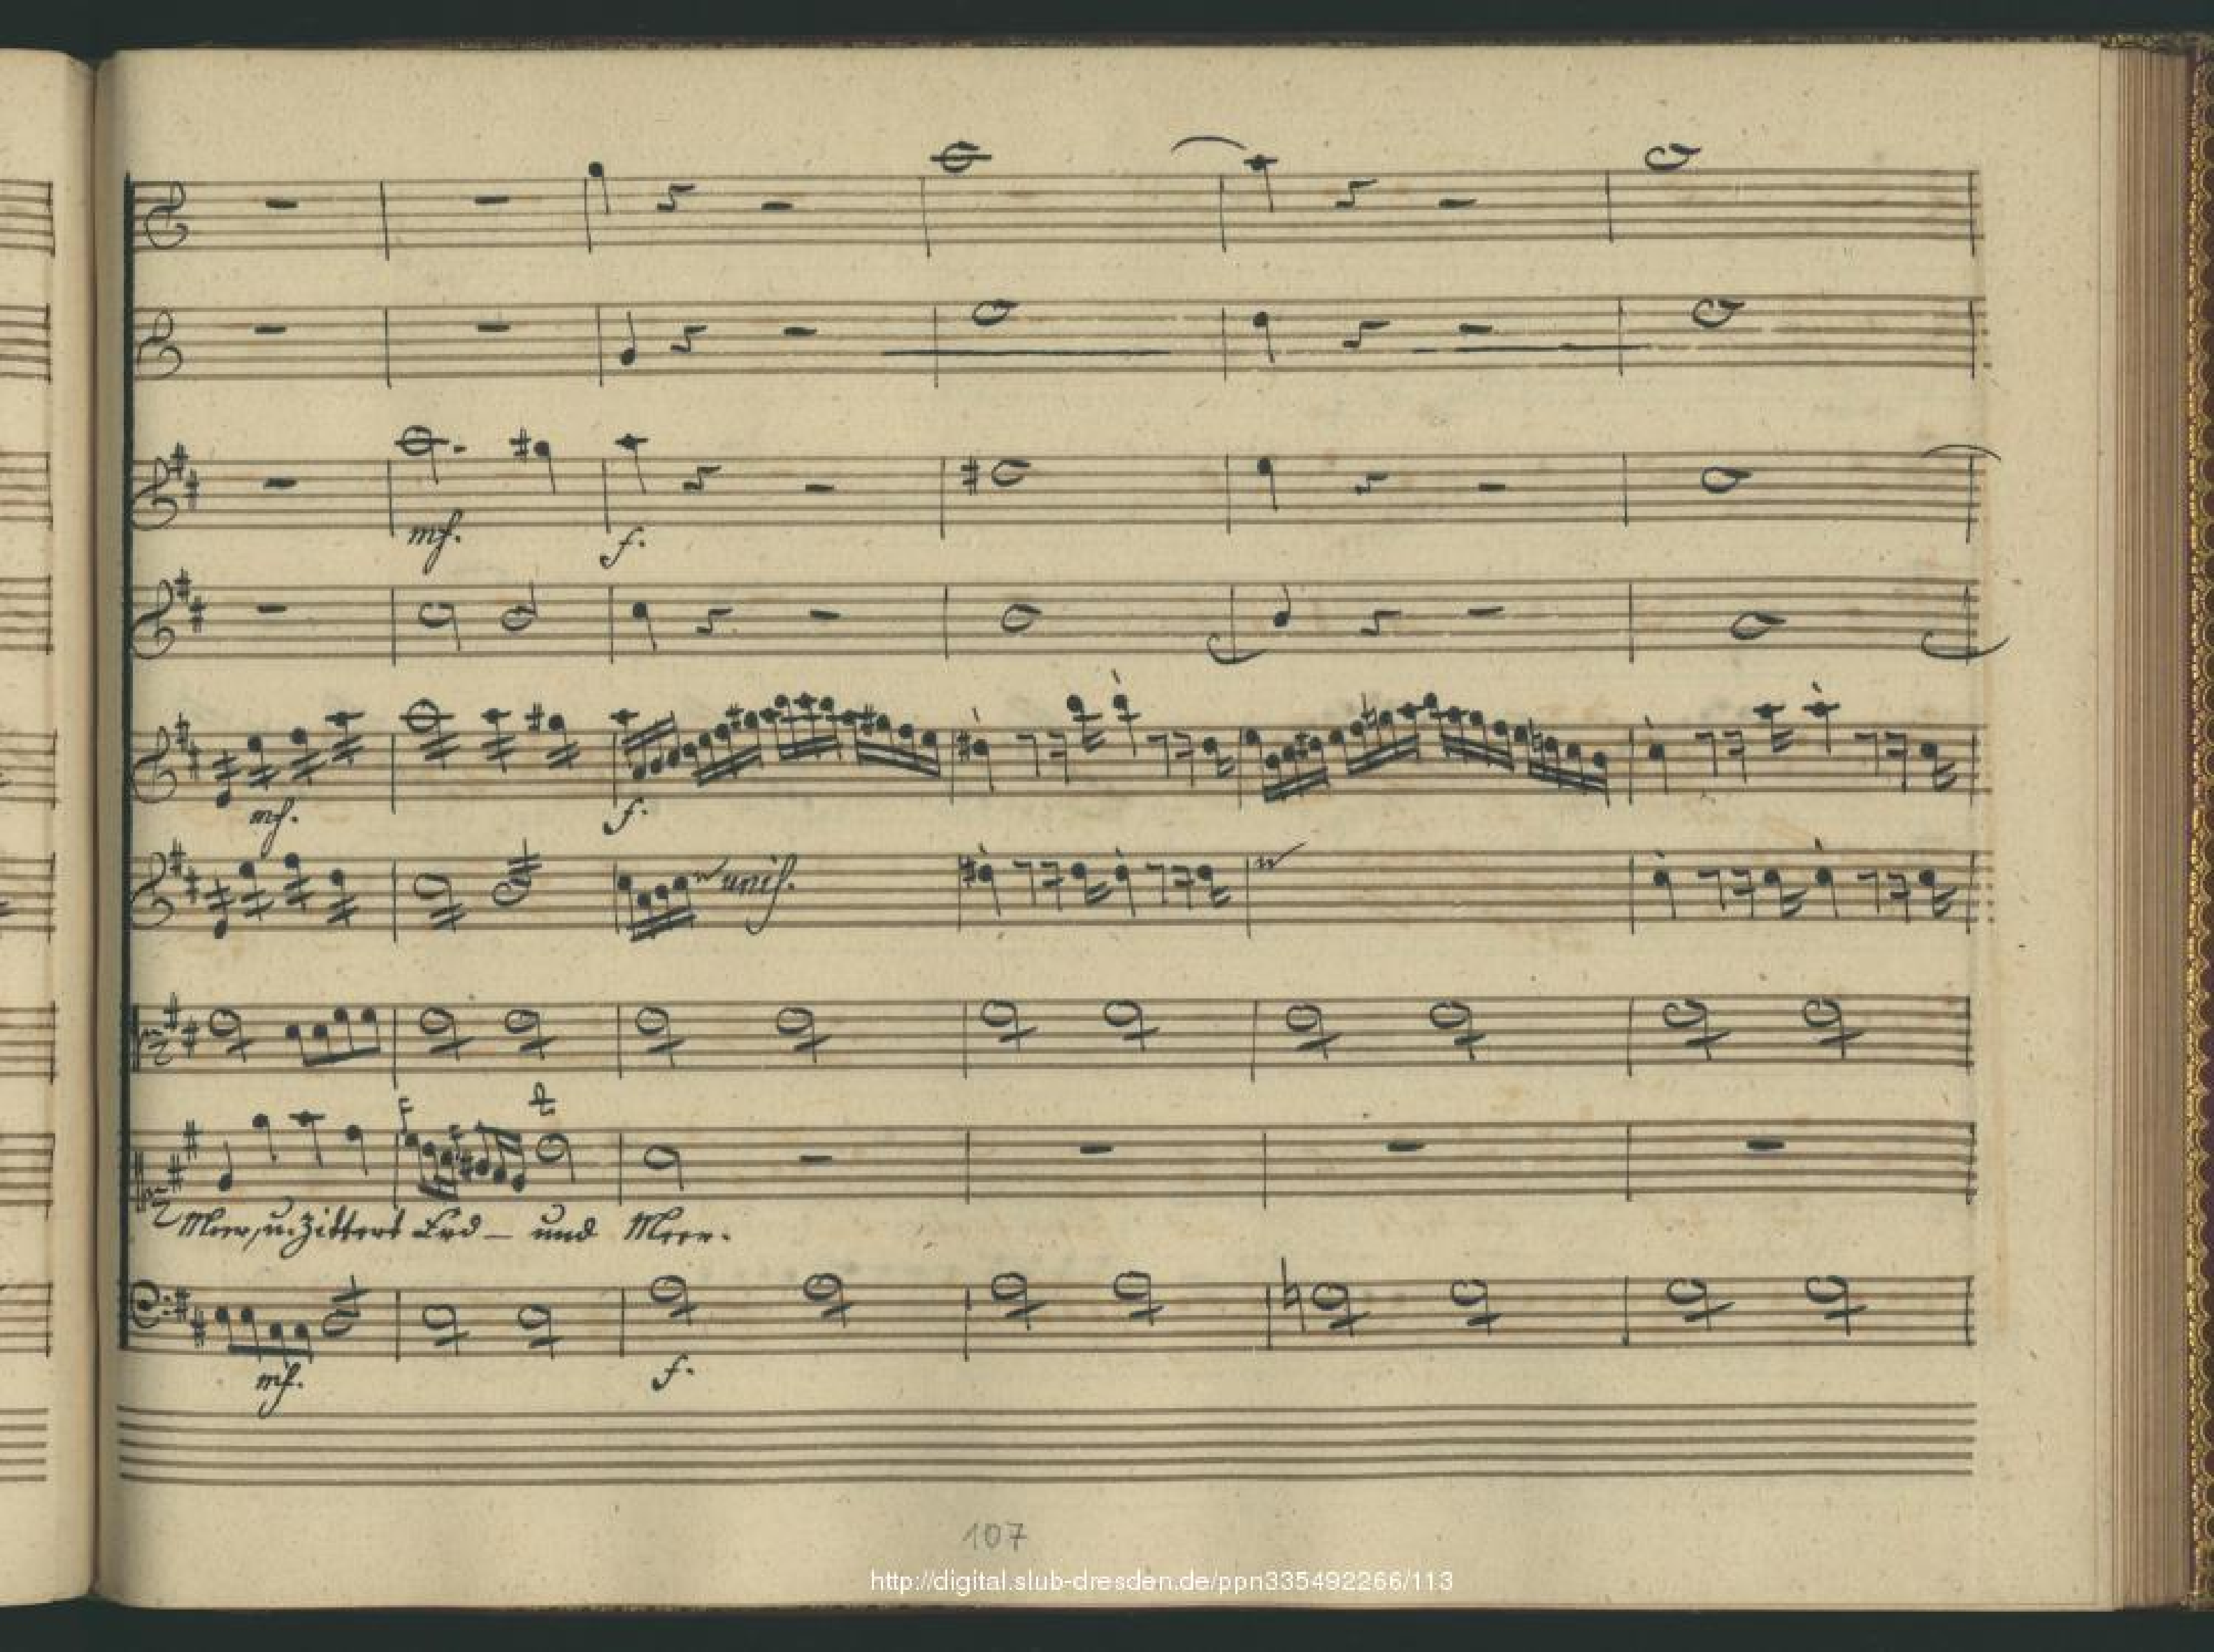 mf. f.
mf. f.
unis.
Meer, u. zittert Erd – und Meer.
mf. f.
107
http://digital.slub-dresden.de/ppn335492266/113